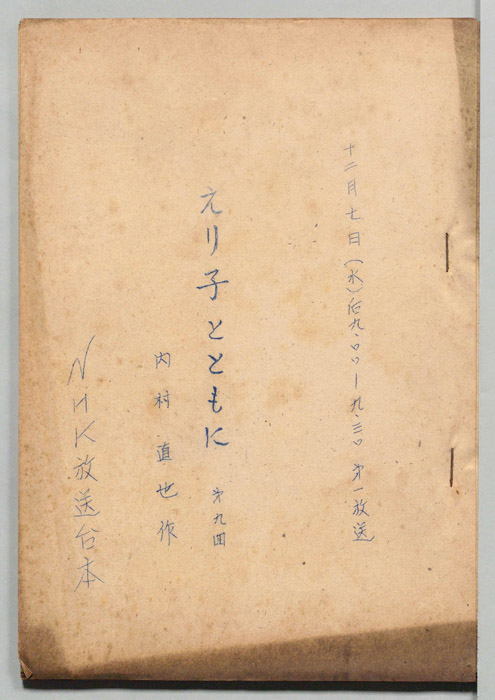 十二月七日(水)后九・〇〇ー九・三〇 第一放送
えり子とともに 第九回
内村直也作
NHK放送台本